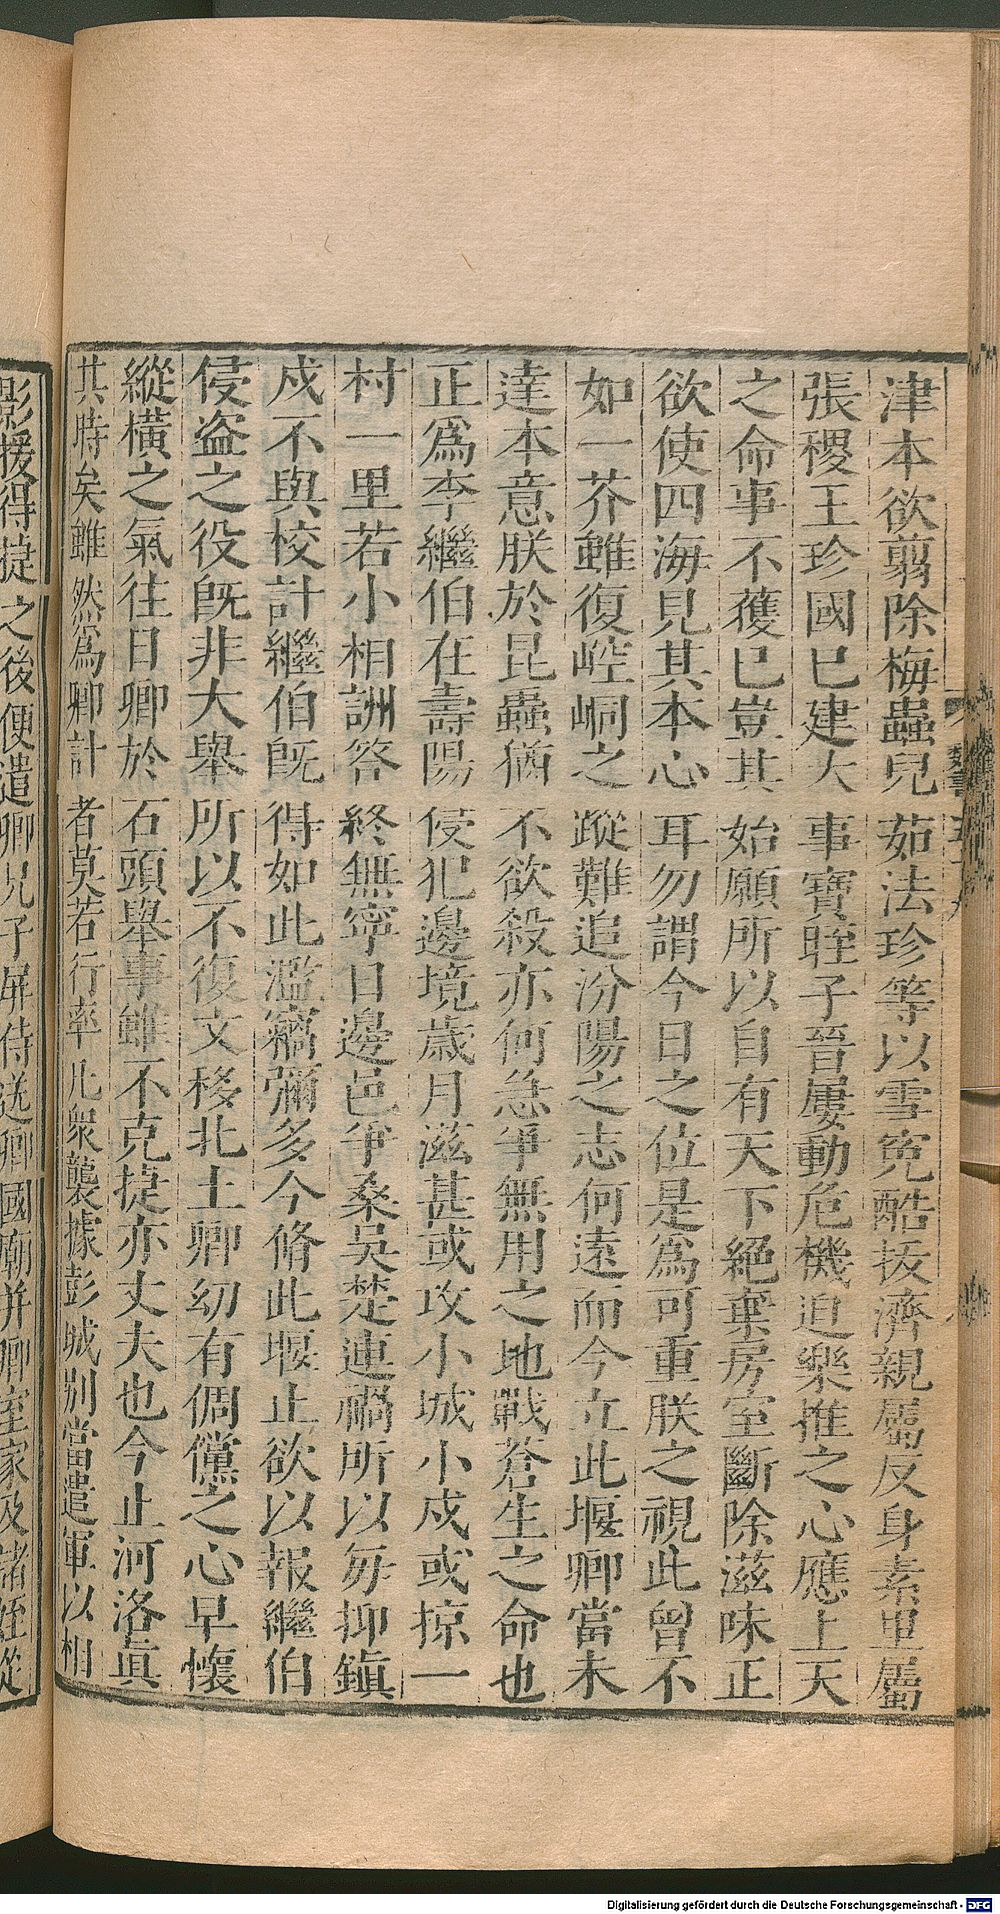 津本欲翦除梅蟲兒茹法珍等以雪寃酷拔濟親屬反身素里屬
張稷王珍國已建大事寶晊子晉屢動危機迫樂推之心應上天
之命事不獲已豈其始願所以自有天下絕棄房室斷除滋味正
欲使四海見其本心耳勿謂今日之位是爲可重朕之視此曾不
如一芥雖復崆峒之蹤難追汾陽之志何遠而今立此堰卿當未
達本意朕於昆蟲猶不欲殺亦何急爭無用之地戰蒼生之命也
正爲李繼伯在壽陽侵犯邊境歲月滋甚或攻小城小戍或掠一
村一里若小相詶答終無寧日邊邑爭桑吳楚連禍所以每抑鎮
戍不與校計繼伯旣得如此濫竊彌多今脩此堰止欲以報繼伯
侵盜之役旣非大舉所以不復文移北土卿幼有倜儻之心早懷
縱橫之氣往日卿於石頭舉事雖不克捷亦丈夫也今止河洛眞
其時矣雖然爲卿計者莫若行率几衆襲據彭城別當遣軍以相
影援得捷之後便遣卿兄子屏侍送卿國廟并卿室家及諸姪從
Digitalisierung gefördert durch die Deutsche Forschungsgemeinschaft - DFG